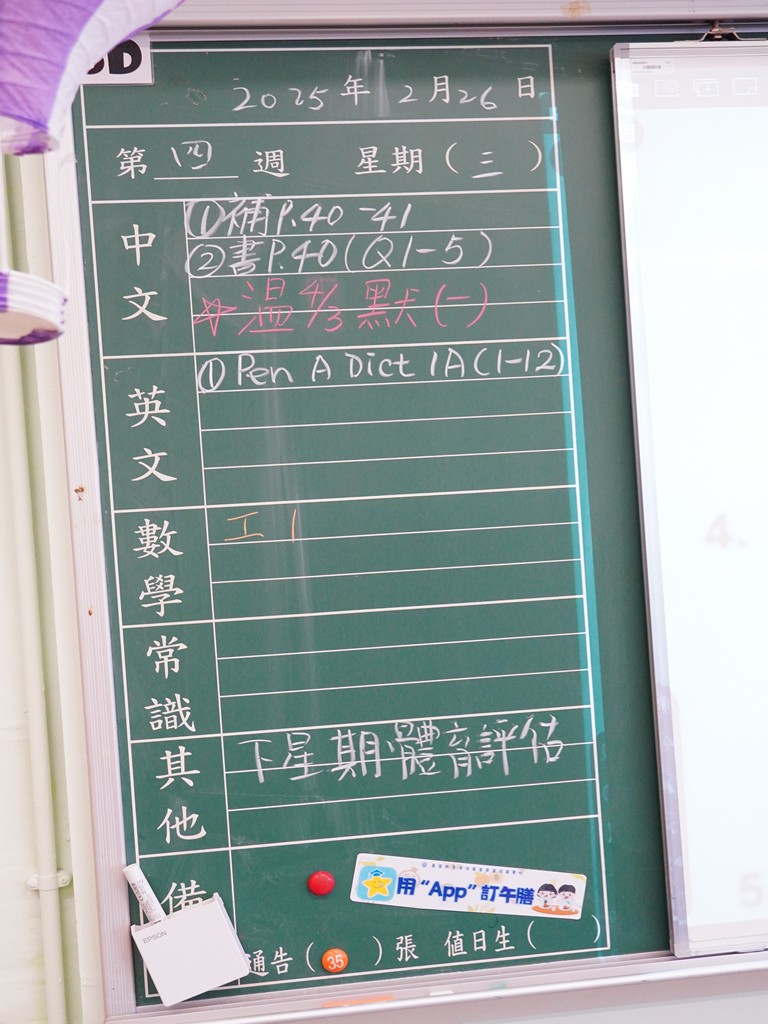 D
2025年 2月26日
第 四 週 星期 ( 三 )
中文
①補P.40-41
②書P.40(Q1-5)
☆溫4/3默(一)
英文
① Pen A Dict 1A(1-12)
數學
工 1
常識
其他
下星期體育評估
備
用“App”訂午膳
EPSON
通告 ( 35 ) 張 值日生 ( )
4.
5